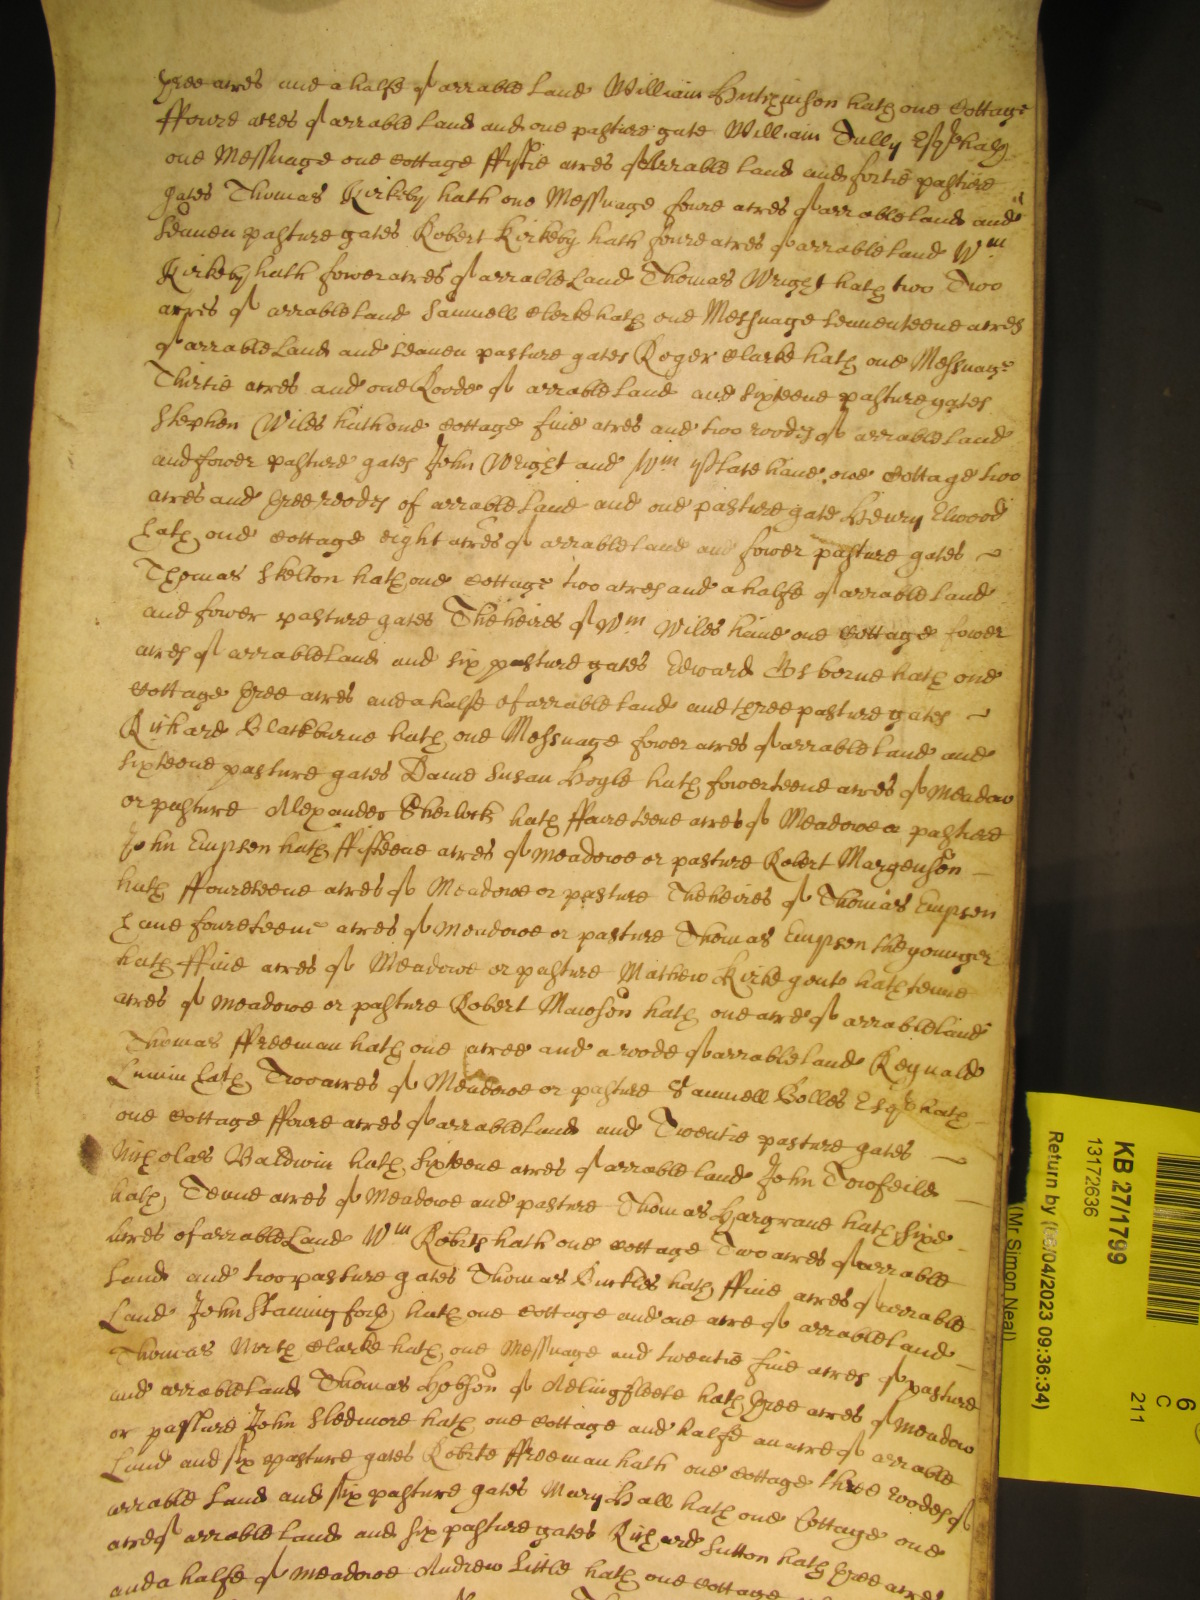 three acres and a halfe of arrable land William Hutchinson hath one Cottage
ffoure acres of arrable Land and one pasture gate William Tully Esqr hath
one Messuage one cottage ffiftie acres of Arrable land and fortie pasture
gates Thomas Kirkeby hath one Messuage foure acres of arrable land and
seauen pasture gates Robert Kirkeby hath foure acres of arrable land Wm
Kirkeby hath fower acres of arrable Land Thomas Wright hath two Two
acres of arrable land Samuell Clerke hath one Messuage seauenteene acres
of arrable Land and seauen pasture gates Roger Clarke hath one Messuage
Thirtie acres and one Roode of arrable land and sixteene pasture gates
Stephen Wiles hath one Cottage fiue acres and two roodes of arrable Land
and fower pasture gates John Wright and Wm haue one Cottage two
acres and three roodes of arrable land and one pasture gate Henry Elwood
hath one cottage eight acres of arrable land and fower pasture gates
Thomas Skelton hath one Cottage two acres and a halfe of arrable Land
and fower pasture gates The heires of Wm Wiles haue one Cottage fower
acres of arrable Land and six pasture gates Edward Osborne hath one
Cottage three acres and a halfe of arrable Land and three pasture gates
Richard Blackburne hath one Messuage fower acres of arrable Land and
sixteene pasture gates Dame Susan Hogle hath fowerteene acres of meadow
or pasture Alexander Sherlock hath ffoureteene acres of Meadowe or pasture
John Empson hath ffifteene acres of meadowe or pasture Robert Margenson
hath ffoureteene acres of Meadowe or pasture The heires of Thomas Empson
haue foureteene acres of Meadowe or pasture Thomas Empson the younger
hath ffiue acres of Meadowe or pasture Mathew Kirke gent hath tenne
acres of meadowe or pasture Robert Mawson hath one acre of arrable land
Thomas ffreeman hath one acree and a roode of arrable Land Reynald
hath Two acres of Meadowe or pasture Samuell Bolles Esqr hath
one cottage ffoure acres of arrable Land and Twentie pasture gates
Nicholas Baldwin hath sixteene acres of arrable land John Towfeild
hath Tenne acres of Meadowe and pasture Thomas Hargraue hath sixe
acres of arrable Land Wm Roberts hath one cottage Two acres of arrable
Land and two pasture gates Thomas Buckles hath ffiue acres of arrable
Land John Staningforth hath one Cottage and one acre of arrable Land
Thomas North Clarke hath one Messuage and twentie fiue acres of pasture
and arrable Land Thomas Hobson of Adlingfleete hath three acres of Meadow
or pasture John Skedmore hath one Cottage and halfe an acre of arrable
Land and six pasture gates Robert ffreeman hath one Cottage three roodes of
arrable Land and six pasture gates Mary Hall hath one Cottage one
acre of arrable Land and six pasture gates Richard Sutton hath three acres
and a halfe of Meadowe Andrew Little hath one Cottage
KB 27/1799
13172636
Return by (06/04/2023 09:36:34)
(Mr Simon Neal)
6
C
211